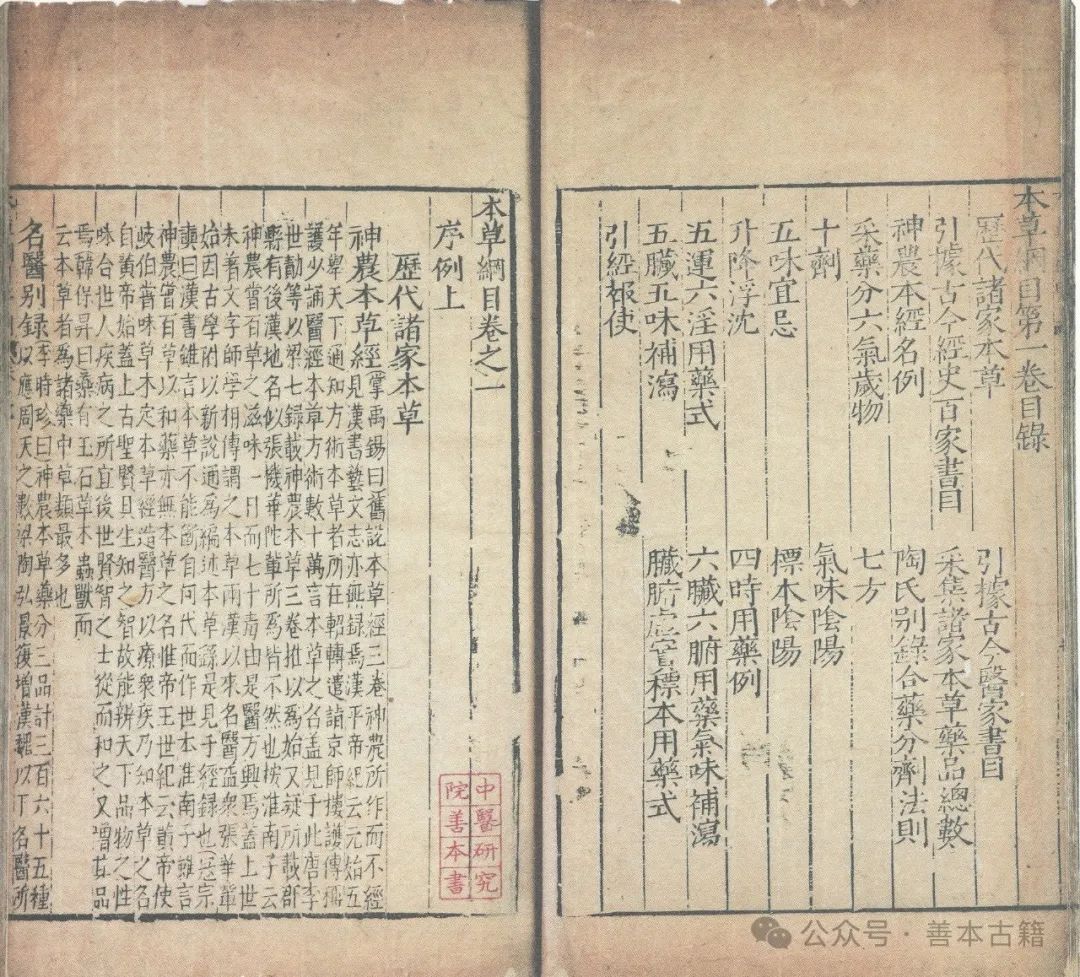 本草綱目第一卷目錄
歷代諸家本草　引據古今醫家書目
引據古今經史百家書目　采集諸家本草藥品總數
神農本經名例　陶氏別錄合藥分劑法則
采藥分六氣歲物　七方
十劑　氣味陰陽
五味宜忌　標本陰陽
升降浮沈　四時用藥例
五運六淫用藥式　六臟六腑用藥氣味補瀉
五臟五味補瀉　臟腑虛實標本用藥式
引經報使
本草綱目卷之一
序例上
歷代諸家本草
神農本草經掌禹錫曰舊說本草經三卷神農所作而不經
見漢書藝文志亦無錄焉漢平帝紀云元始五
年舉天下通知方術本草者所在軺轉遣詣京師樓護傳稱
護少誦醫經本草方術數十萬言本草之名蓋見于此唐李
世勣等以梁七錄載神農本草三卷推以為始又疑所載郡
縣有後漢地名似張機華陀輩所為皆不然也按淮南子云
神農嘗百草之滋味一日而七十毒由是醫方興焉蓋上世
未著文字師學相傳謂之本草兩漢以來名醫益眾張華輩
始因古學附以新說通為編述本草繇是見于經錄也寇宗
奭曰漢書雖言本草不能斷自何代而作世本淮南子雖言
神農嘗百草以和藥亦無本草之名惟帝王世紀云黃帝使
岐伯嘗味草木定本草經造醫方以療眾疾乃知本草之名
自黃帝始蓋上古聖賢具生知之智故能辨天下品物之性
味合世人疾病之所宜後世賢智之士從而和之又增其品
焉韓保昇曰藥有玉石草木蟲獸而
云本草者為諸藥中草類最多也
名醫別錄李時珍曰神農本草藥分三品計三百六十五種
以應周天之數梁陶弘景復增漢魏以下名醫所
中醫研究
院善本書
公众号·善本古籍